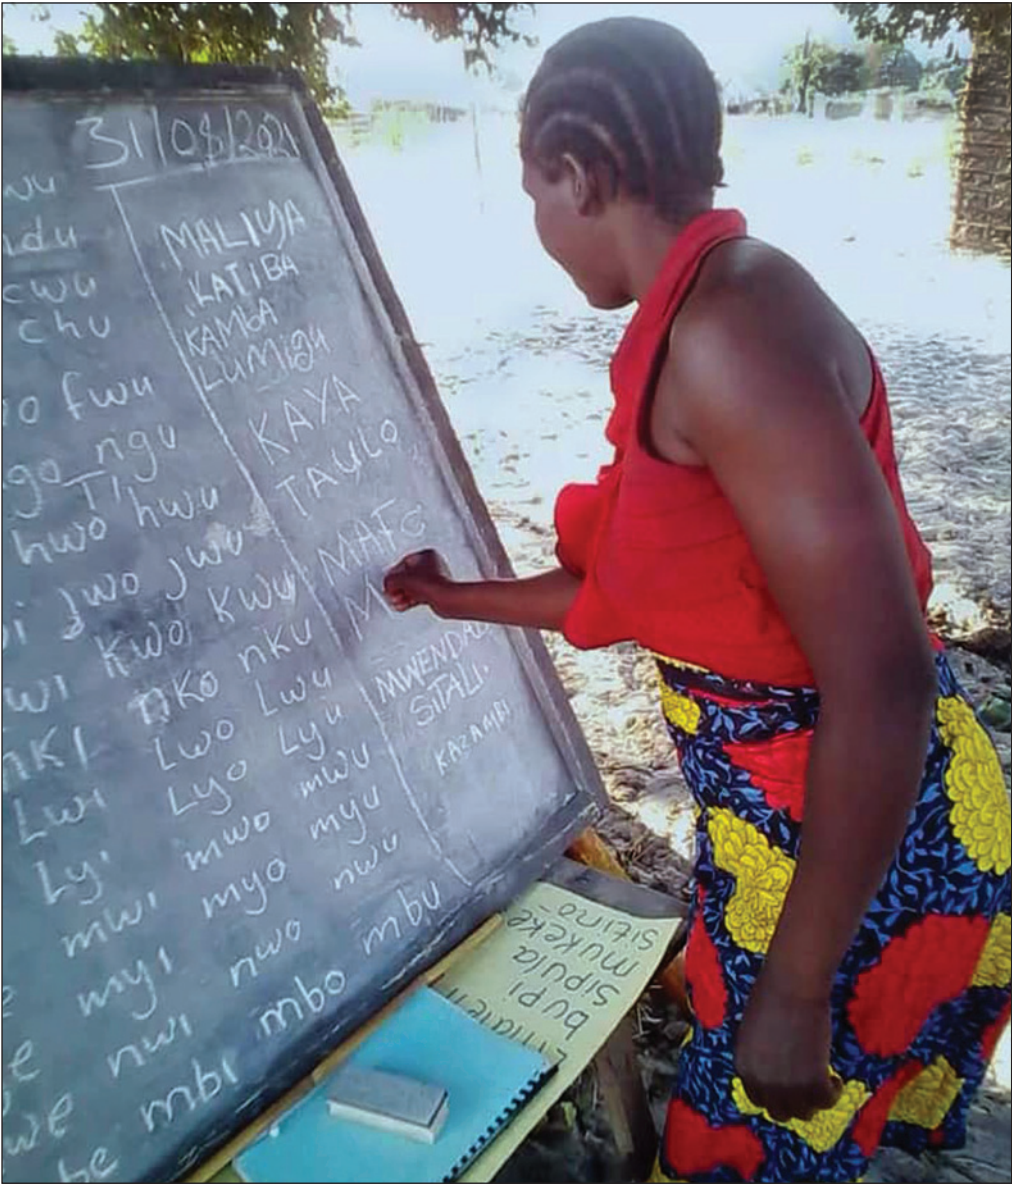 31/08/2021
wu
ndu
cwu
chu
fwu
ngu
hwo hwu
jwo jwu
kwo kwu
nKI nKo nku
Lwi Lwo Lwu
Lyi Lyo Lyu
mwi mwo mwu
myi myo myu
nwi nwo nwu
mbi mbo mbu
MALIYA
KATIBA
KAMbA
LUMigu
KAYA
TAULO
SITALI
KAZAMBI
bupi
sipula
mukeke
sitino-